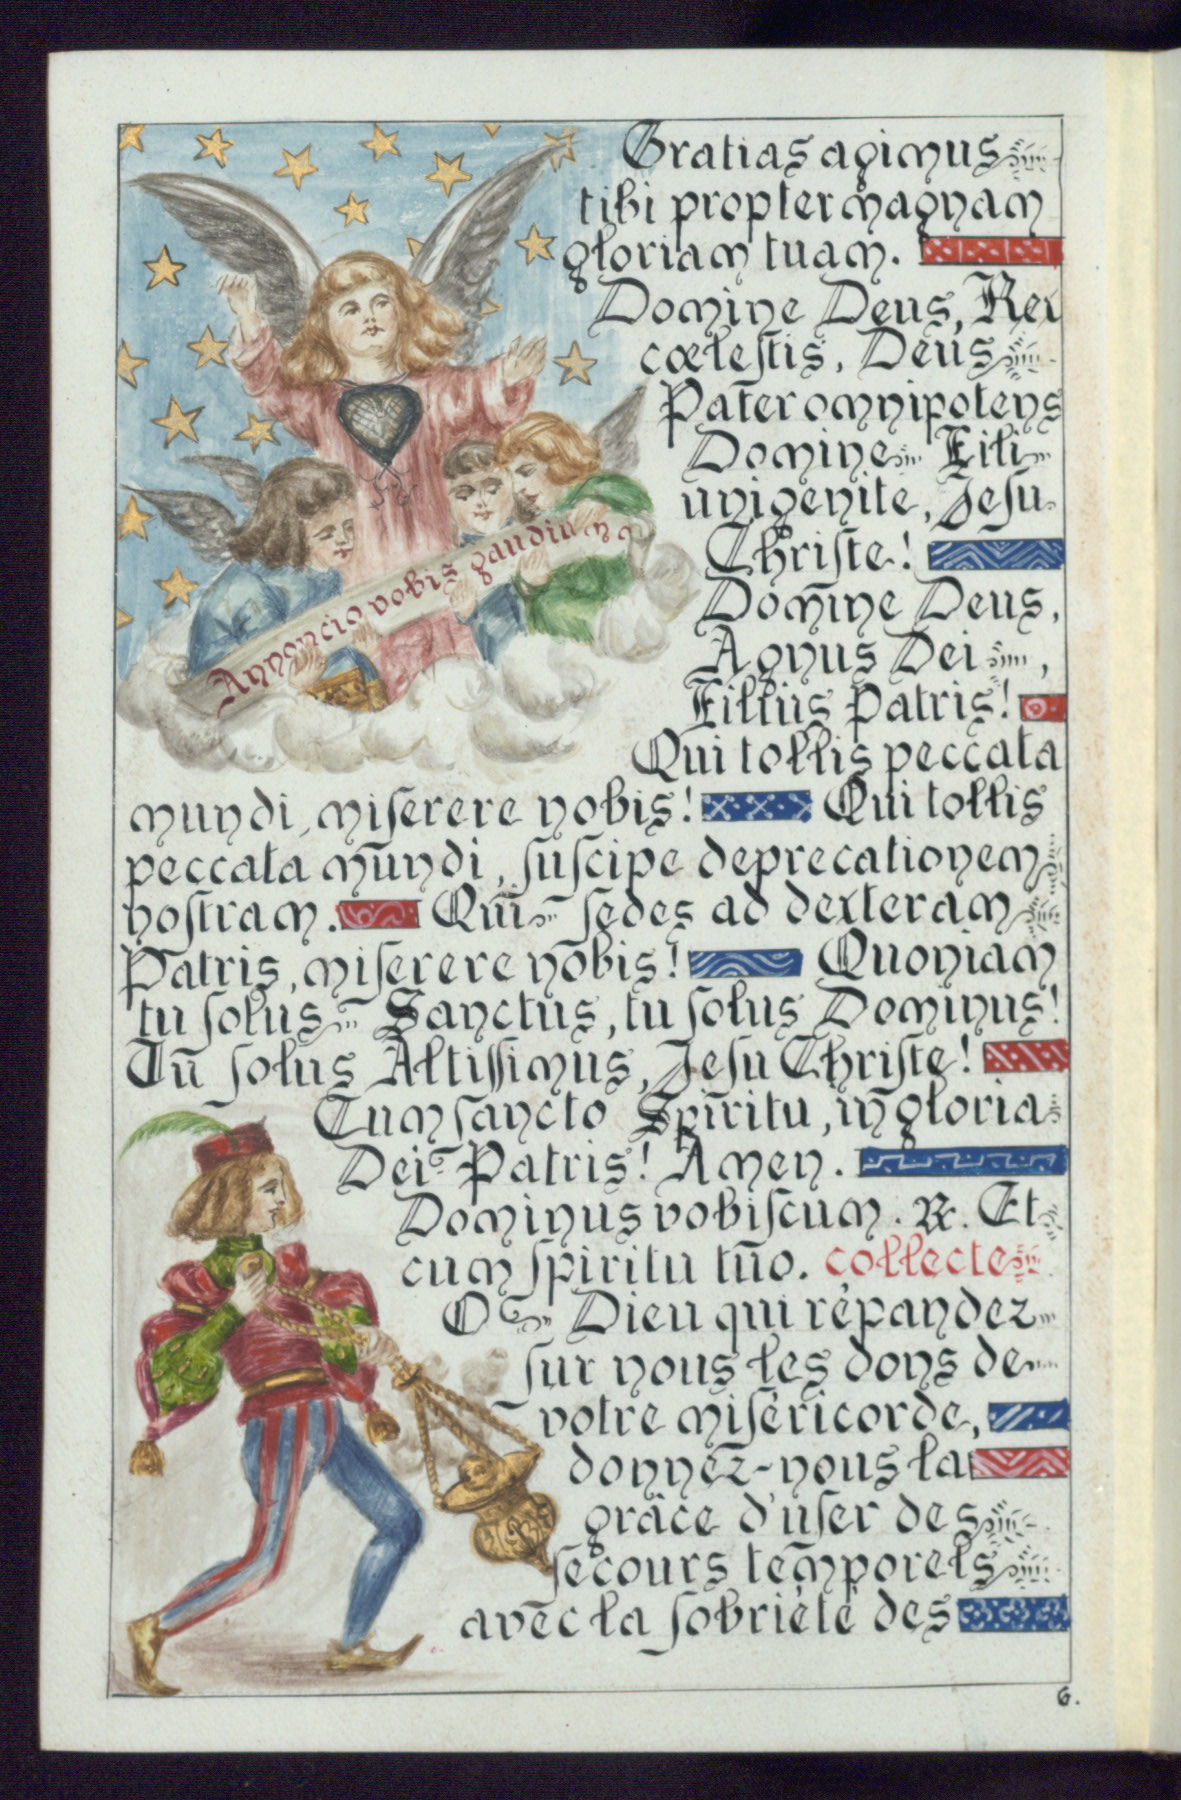 Gratias agimus
tibi propter magnam
gloriam tuam.
Domine Deus, Rex
cœlestis, Deus
Pater omnipotens
Domine Fili
unigenite, Jesu
Christe!
Domine Deus,
Agnus Dei,
Filius Patris!
Qui tollis peccata
mundi, miserere nobis! Qui tollis
peccata mundi, suscipe deprecationem
nostram. Qui sedes ad dexteram
Patris, miserere nobis! Quoniam
tu solus Sanctus, tu solus Dominus!
Tu solus Altissimus, Jesu Christe!
Cum sancto Spiritu, in gloria
Dei Patris! Amen.
Dominus vobiscum. ℟. Et
cum spiritu tuo. collecte
O Dieu qui répandez
sur nous les dons de
votre miséricorde,
donnez-nous la
grâce d'user des
secours temporels
avec la sobriété des
Annoncio vobis gaudium
6.